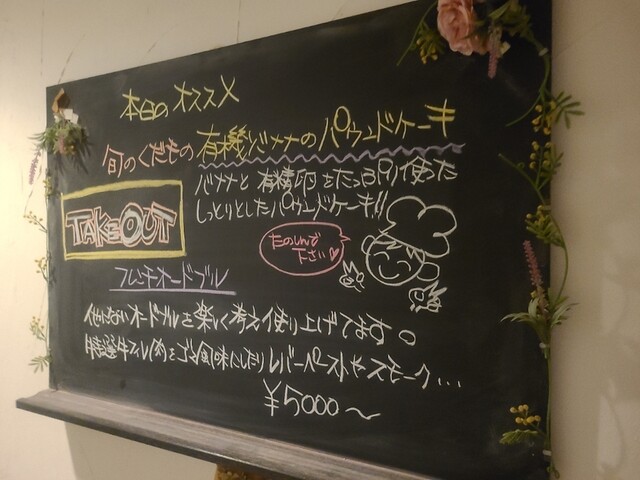 本日のオススメ
旬のくだもの 有機バナナのパウンドケーキ
バナナと有精卵をたっぷり使った
しっとりとしたパウンドケーキ!!
TAKEOUT
たのしんで
下さい♡
フレンチオードブル
他にないオードブルを楽しく考え作り上げてます。
特選牛フィレ肉をゴマ風味にしたりレバーペーストやスモーク...
¥5000〜